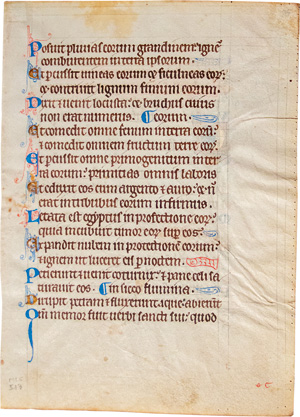 Posuit pluuias eorum grandinem: igne
comburentem in terra ipsorum.
Et percussit uineas eorum et ficulneas eor:
et contriuit lignum finium eorum.
Dixit et uenit locusta: et bruchus cuius
non erat numerus. eorum.
Et comedit omne fenum in terra eoru:
et comedit omnem fructum terre eor.
Et percussit omne primogenitum in ter
ra eorum: primicias omnis laboris
Et eduxit eos cum argento et auro: et n
erat in tribubus eorum infirmus.
Letata est egyptus in profectione eor:
quia incubuit timor eor sup eos.
Expandit nubem in protectionem eorum:
et ignem ut luceret eis p noctem.
Petierunt et uenit coturnix: et pane celi sa
turauit eos. in sicco flumina.
Dirupit petram et fluxerunt aque: abierunt
Qm memor fuit uerbi sancti sui: quod